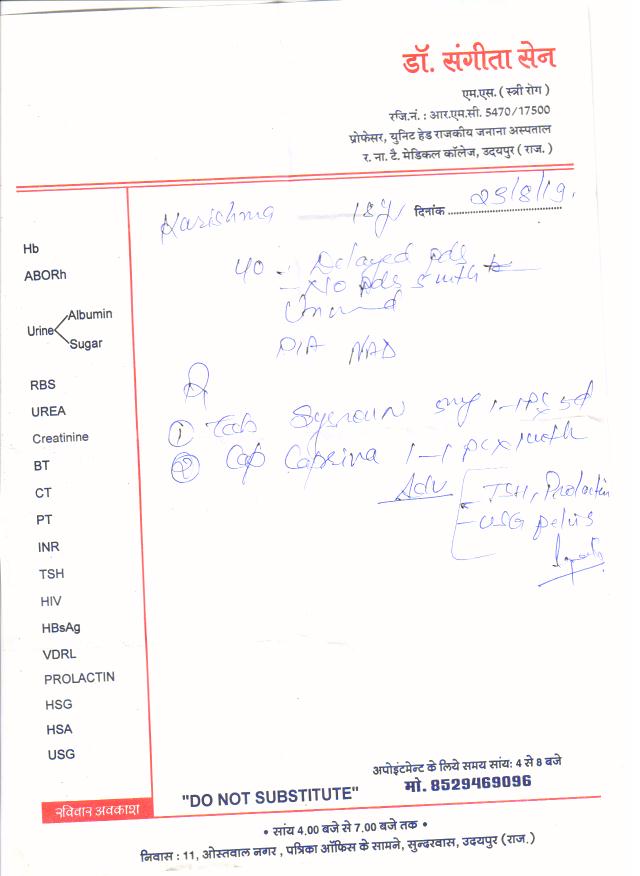 डॉ. संगीता सेन
एम.एस. ( स्त्री रोग )
रजि.नं. : आर.एम.सी. 5470/17500
प्रोफेसर, युनिट हेड राजकीय जनाना अस्पताल
र. ना. टै. मेडिकल कॉलेज, उदयपुर ( राज. )
Karishma 18y दिनांक 23/8/19.
Hb
ABORh
Urine
Albumin
Sugar
RBS
UREA
Creatinine
BT
CT
PT
INR
TSH
HIV
HBsAg
VDRL
PROLACTIN
HSG
HSA
USG
Delayed pds
No pds
P/A NAD
① Tab
② Cap
Adv TSH, Prolactin
- USG pelvis
अपोइंटमेन्ट के लिये समय सांय: 4 से 8 बजे
मो. 8529469096
रविवार अवकाश
"DO NOT SUBSTITUTE"
• सांय 4.00 बजे से 7.00 बजे तक •
निवास : 11, ओस्तवाल नगर , पत्रिका ऑफिस के सामने, सुन्दरवास, उदयपुर (राज.)